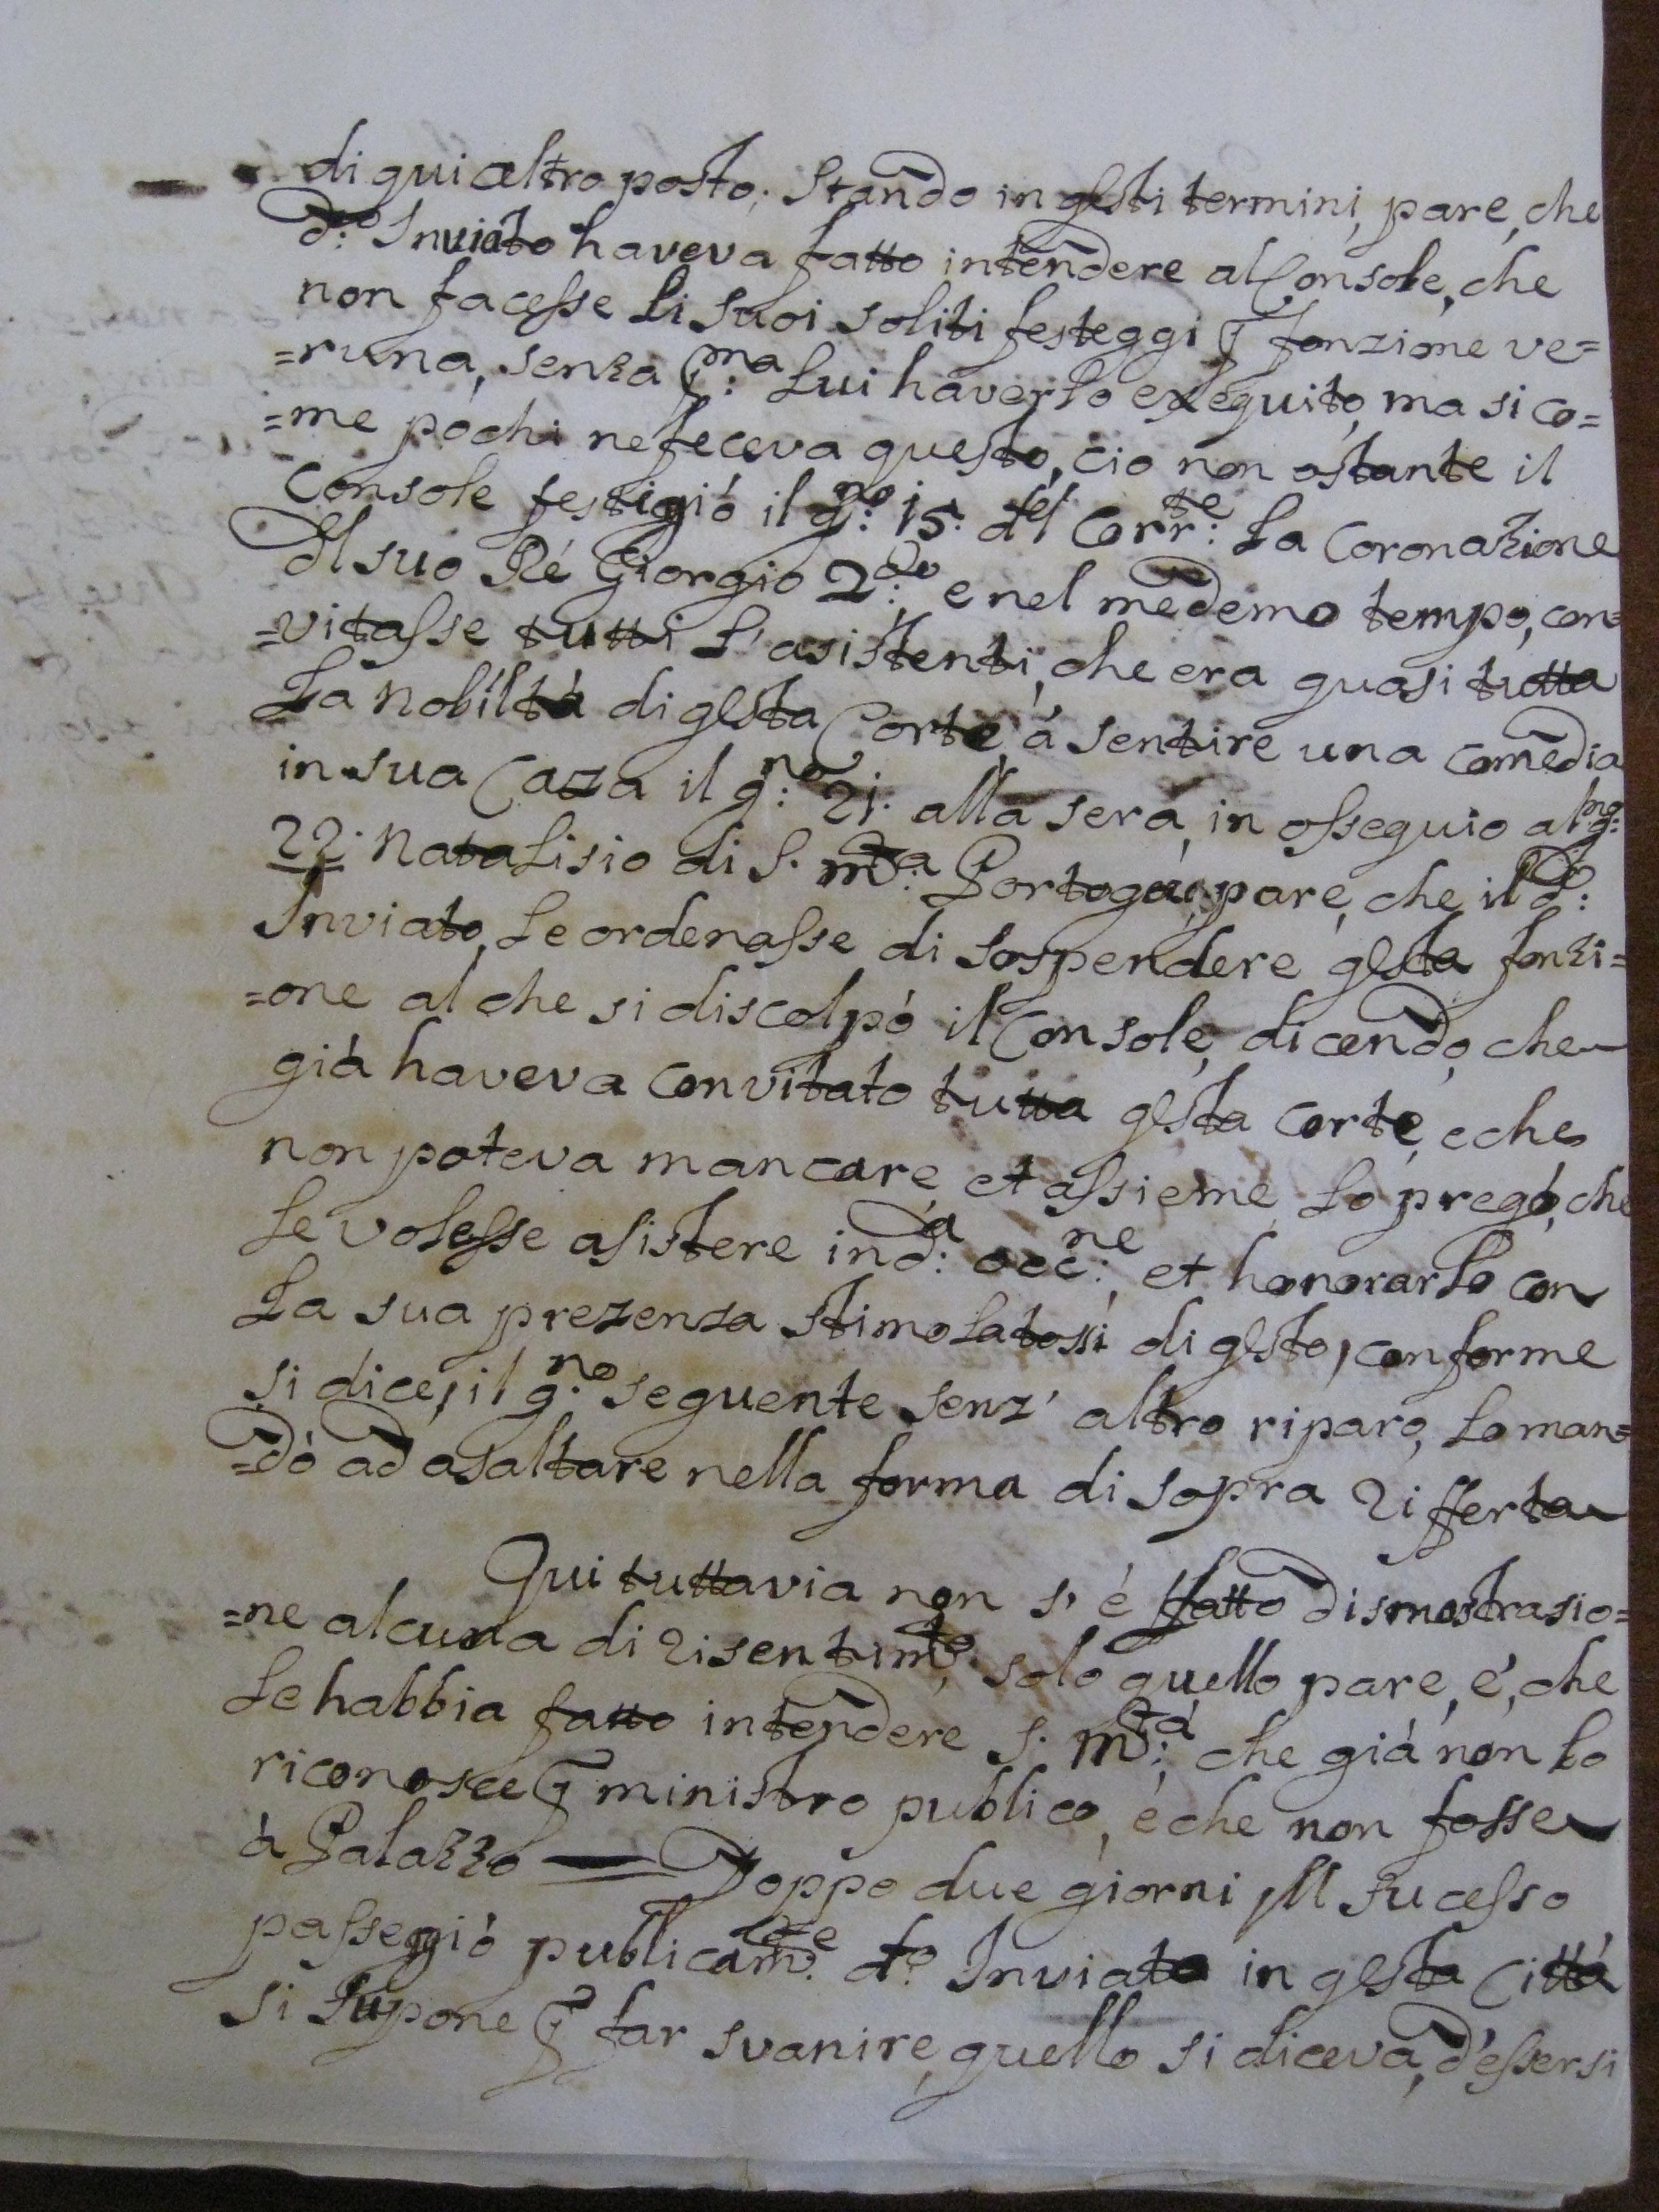 di qui altro posto; Stando in gesti termini, pare, che
d:o Inviato haveva fatto intendere al Console, che
non facesse li suoi soliti festeggi p fonzione ve=
=runa, senza p:ma lui haverlo exequito, ma si co=
=me pochi ne feceva questo, cio non ostante il
Console festigió il g:no 15: del Corr:te la Coronazione
del suo Ré Giorgio 2:do e nel medemo tempo, con=
=vitasse tutti l'asistenti, che era quasi tutta
la Nobiltà di gesta Corte, á sentire una comedia
in sua Caza il g:no 21: alla sera, in ossequio al g:no
22: Natalisio di S. M:tà Portoga; pare, che il d:o
Inviato, le ordenasse di sospendere gesta fonzi=
=one al che si discolpó il Console, dicendo, che
già haveva convitato tutta gesta Corte, e che
non poteva mancare, et assieme lo pregó, che
le volesse asistere in d:a occ:ne, et honorarlo con
la sua prezenza stimolatossi di gesto, conforme
si dice, il g:no seguente senz' altro riparo, lo man=
=dò ad asaltare nella forma di sopra rifferta
Qui tuttavia non s' é fatto dismostrasio=
=ne alcuna di risentim:to, solo quello pare, é, che
le habbia fatto intendere S. M:tà, che già non lo
riconosce p ministro publico, e che non fosse
à Palazzo — Doppo due giorni del sucesso
passeggió publicam:te d:o Inviato in gesta Città
si supone p far svanire, quello si diceva, d'essersi